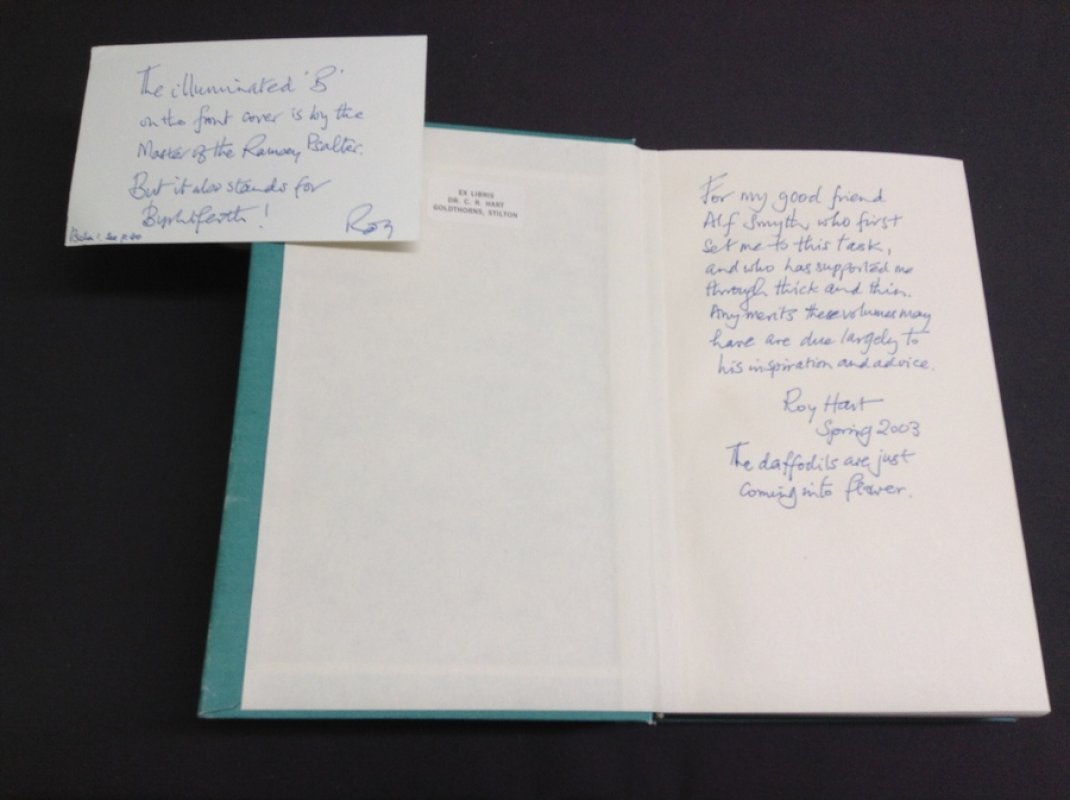 The illuminated 'B'
on the front cover is by the
Master of the Ramsey Psalter.
But it also stands for
Byrhtferth!
Roy
EX LIBRIS
DR. C. R. HART
GOLDTHORNS, STILTON
For my good friend
Alf Smyth, who first
set me to this task,
and who has supported me
through thick and thin.
Any merits these volumes may
have are due largely to
his inspiration and advice.
Roy Hart
Spring 2003
The daffodils are just
coming into flower.